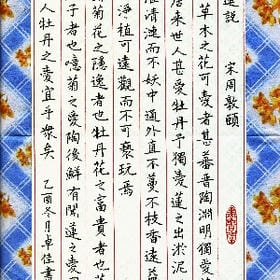 蓮說 宋周敦頤
草木之花可愛者甚蕃晉陶淵明獨愛
唐來世人甚愛牡丹予獨愛蓮之出淤泥
濯清漣而不妖中通外直不蔓不枝香遠
淨植可遠觀而不可褻玩焉
菊花之隱逸者也牡丹花之富貴者也
子者也噫菊之愛陶後鮮有聞蓮之愛同
人牡丹之愛宜乎衆矣 乙酉冬月卓佳書